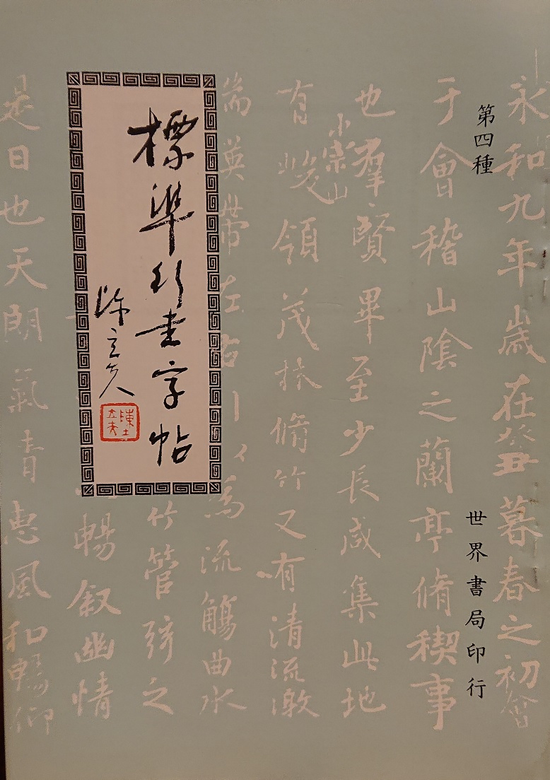 第四種
世界書局印行
標準行書字帖
陳立夫
陳立夫
永和九年歲在癸丑暮春之初會
于會稽山陰之蘭亭脩稧事
也羣賢畢至少長咸集此地
有崇山峻領茂林脩竹又有清流激
湍暎帶左右引以為流觴曲水
竹管弦之
暢敘幽情
是日也天朗氣清惠風和暢仰